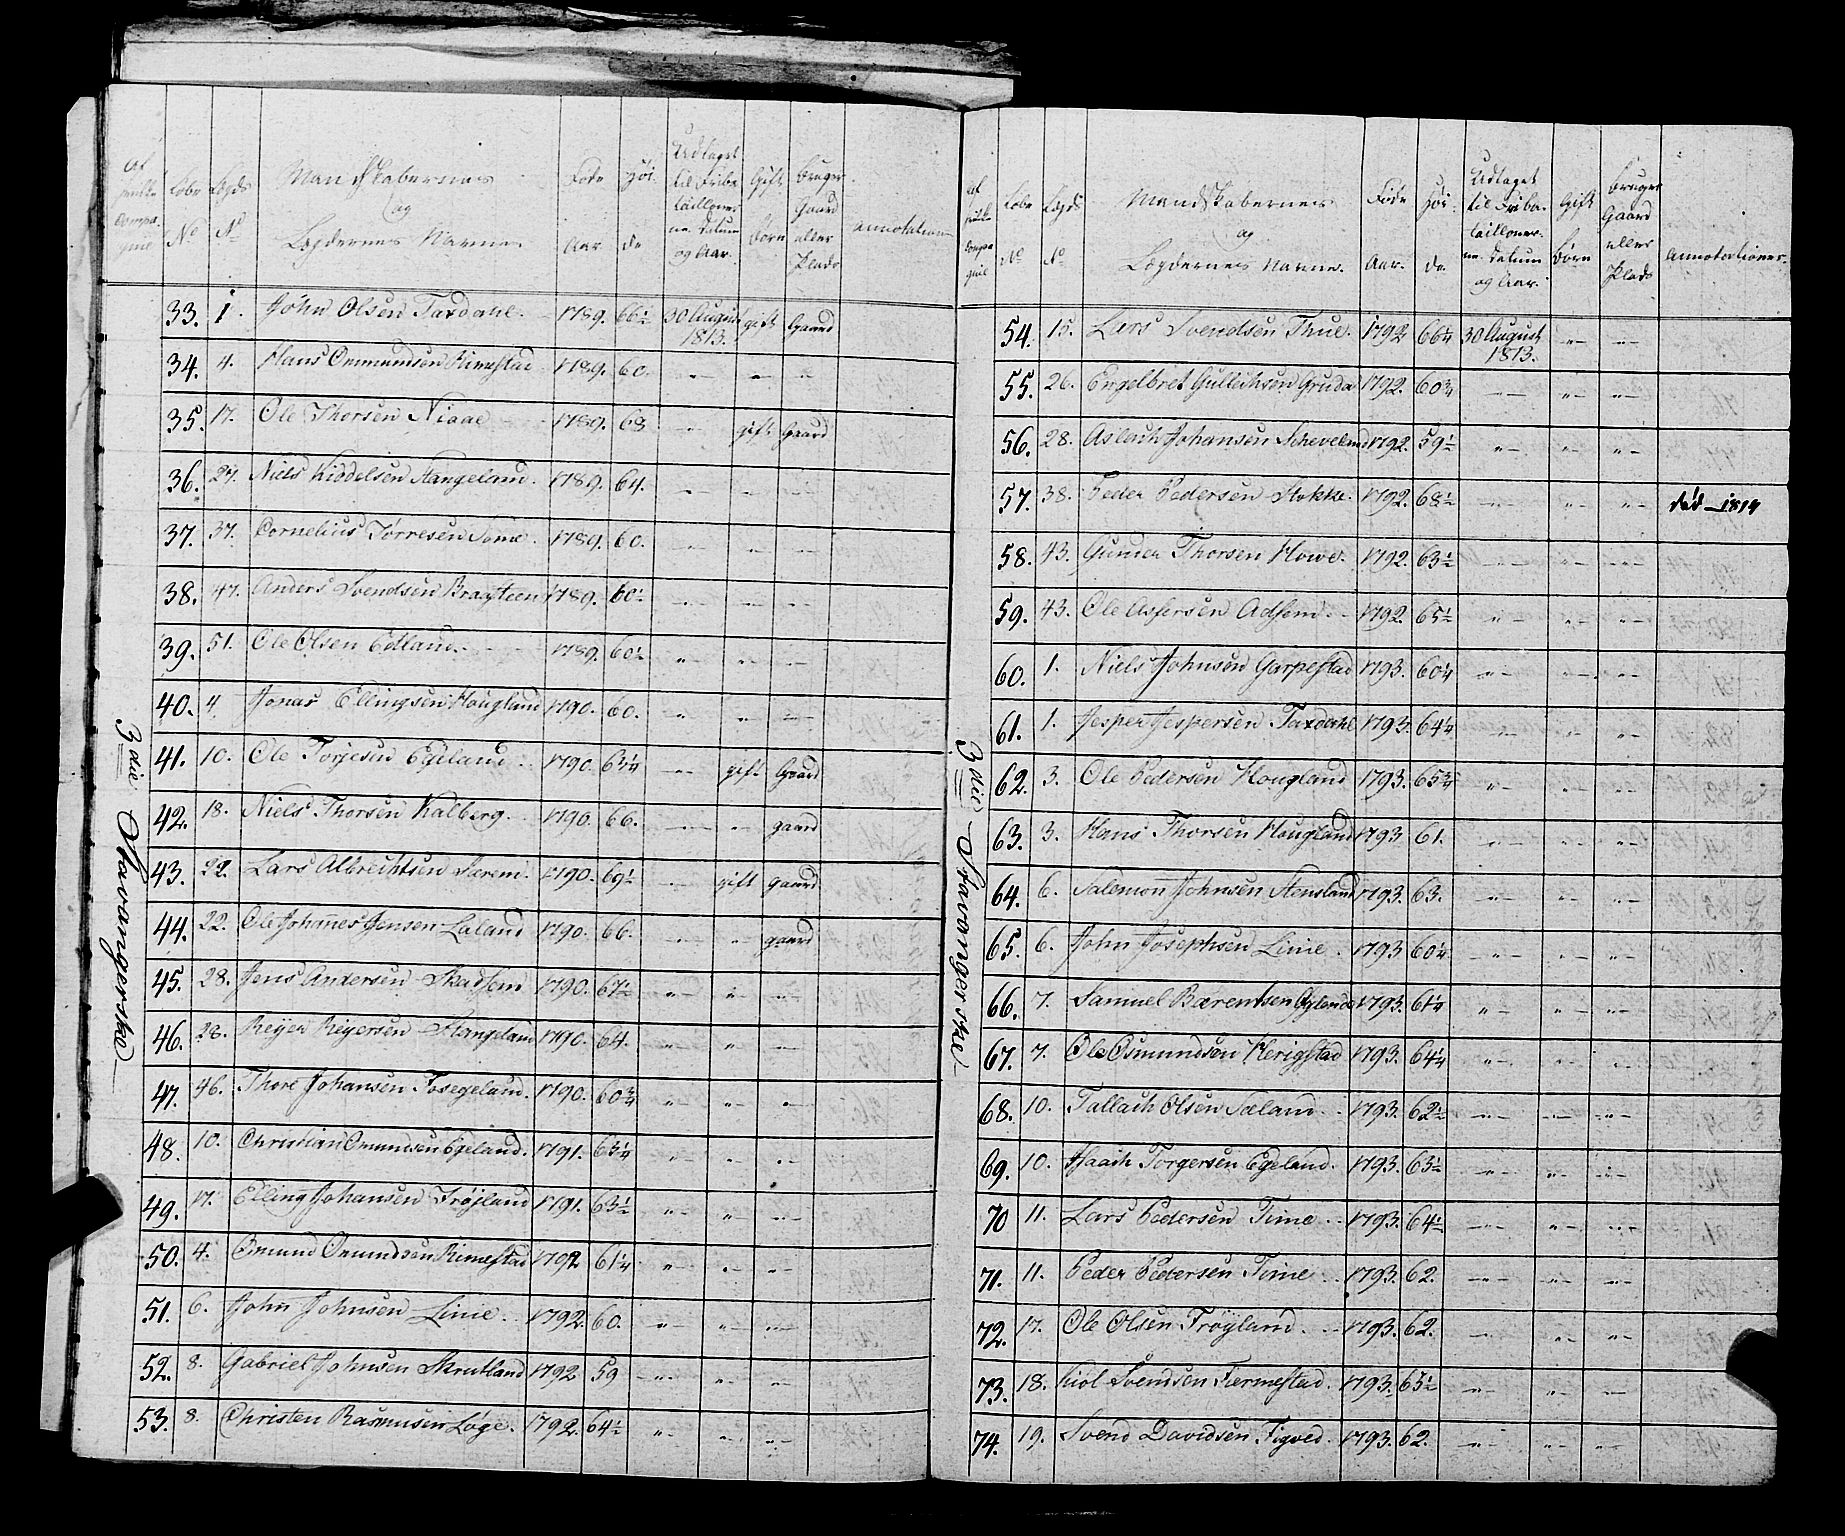 Løbe No Lægds No Mandskabernes og Lægdernes Navne Føde Aar Høide Udtaget til Fribataillonerne datum og Aar. Gift Børn bruger Gaard eller Plads Annotation
3die Stavangerske
33. 1. John Olsen Taxdahl. 1789. 66½ 30 August 1813. gift Gaard
34. 4. Hans Ommundsen Rimestad 1789. 60. -"- -"- -"-
35. 17. Ole Thorsen Niaae 1789. 63 -"- gift Gaard
36. 27. Niels Kiddelsen Hangeland. 1789. 64. -"- -"- -"-
37. 37. Cornelius Tørresen Some. 1789. 60. -"- -"- -"-
38. 47. Anders Svendsen Braasteen 1789. 60½ -"- -"- -"-
39. 51. Ole Olsen Edland. 1789. 60½ -"- -"- -"-
40. 4 Jonas Ellingsen Hougland 1790. 60. -"- -"- -"-
41. 10. Ole Torjesen Egeland 1790. 63¼ -"- gift Gaard
42. 18. Niels Thorsen Kalberg. 1790. 66. -"- -"- gaard
43. 22. Lars Albrechtsen Sørem. 1790. 69½ -"- gift gaard
44. 22. Ole Johannes Jensen Laland 1790. 66. -"- -"- gaard
45. 28. Jens Andersen Skadsem 1790. 67½ -"- -"- -"-
46. 28. Reijer Reijersen Stangeland 1790. 64. -"- -"- -"-
47. 46. Thore Johansen Fosegeland. 1790. 60¾ -"- -"- -"-
48. 10. Christian Omundsen Egeland. 1791. 63¼ -"- -"- -"-
49. 17. Elling Johansen Trøjland 1791. 63½ -"- -"- -"-
50. 4. Omund Omundsen Rimestad 1792 61¼ -"- -"- -"-
51. 6. John Johnsen Linie. 1792. 60. -"- -"- -"-
52. 8. Gabriel Johnsen Skrutland 1792 59 -"- -"- -"-
53. 8. Christen Rasmusen Løge. 1792. 64½ -"- -"- -"-
Løbe No Lægds No Mandskabernes og Lægdernes Navne. Føde Aar. Høide Udtaget til Fribataillonerne datum og Aar. Gift Børn bruger Gaard eller Plads Annotationer.
3die Stavangerske
54. 15. Lars Svendsen Thue. 1792 66¼ 30 August 1813. -"- -"-
55. 26. Engelbret Gullichsen Gruda 1792. 60¾ -"- -"- -"-
56. 28. Aslach Johansen Scheveland 1792. 59½ -"- -"- -"-
57. 38. Peder Pedersen Stokke. 1792. 68½ -"- -"- -"- død 1814
58. 43. Gunder Thorsen Howe. 1792. 63½ -"- -"- -"-
59. 43. Ole Assersen Adsem. 1792. 65½ -"- -"- -"-
60. 1. Niels Johnsen Garpestad 1793. 60¼ -"- -"- -"-
61. 1. Jesper Jespersen Taxdahl 1793. 64¼ -"- -"- -"-
62. 3. Ole Pedersen Hougland 1793. 65¾ -"- -"- -"-
63. 3. Hans Thorsen Hougland 1793. 61. -"- -"- -"-
64. 6. Salomon Johnsen Stensland 1793. 63. -"- -"- -"-
65. 6. John Josephsen Linie. 1793 60¼ -"- -"- -"-
66. 7. Samuel Bærentsen 1793. 61¼ -"- -"- -"-
67. 7. Ole Osmundsen Herigstad 1793. 64¼ -"- -"- -"-
68. 10. Tallach Olsen Sæland. 1793. 62½ -"- -"- -"-
69. 10. Haach Torgersen Egeland. 1793. 63½ -"- -"- -"-
70 11. Lars Pedersen Time. 1793. 64½ -"- -"- -"-
71. 11. Peder Pedersen Time 1793. 62. -"- -"- -"-
72. 17. Ole Olsen Trøyland. 1793. 62. -"- -"- -"-
73. 18. Kiol Svendsen Tiermestad. 1793. 65½ -"- -"- -"-
74. 19. Svend Davidsen Tigved. 1793. 62. -"- -"- -"-